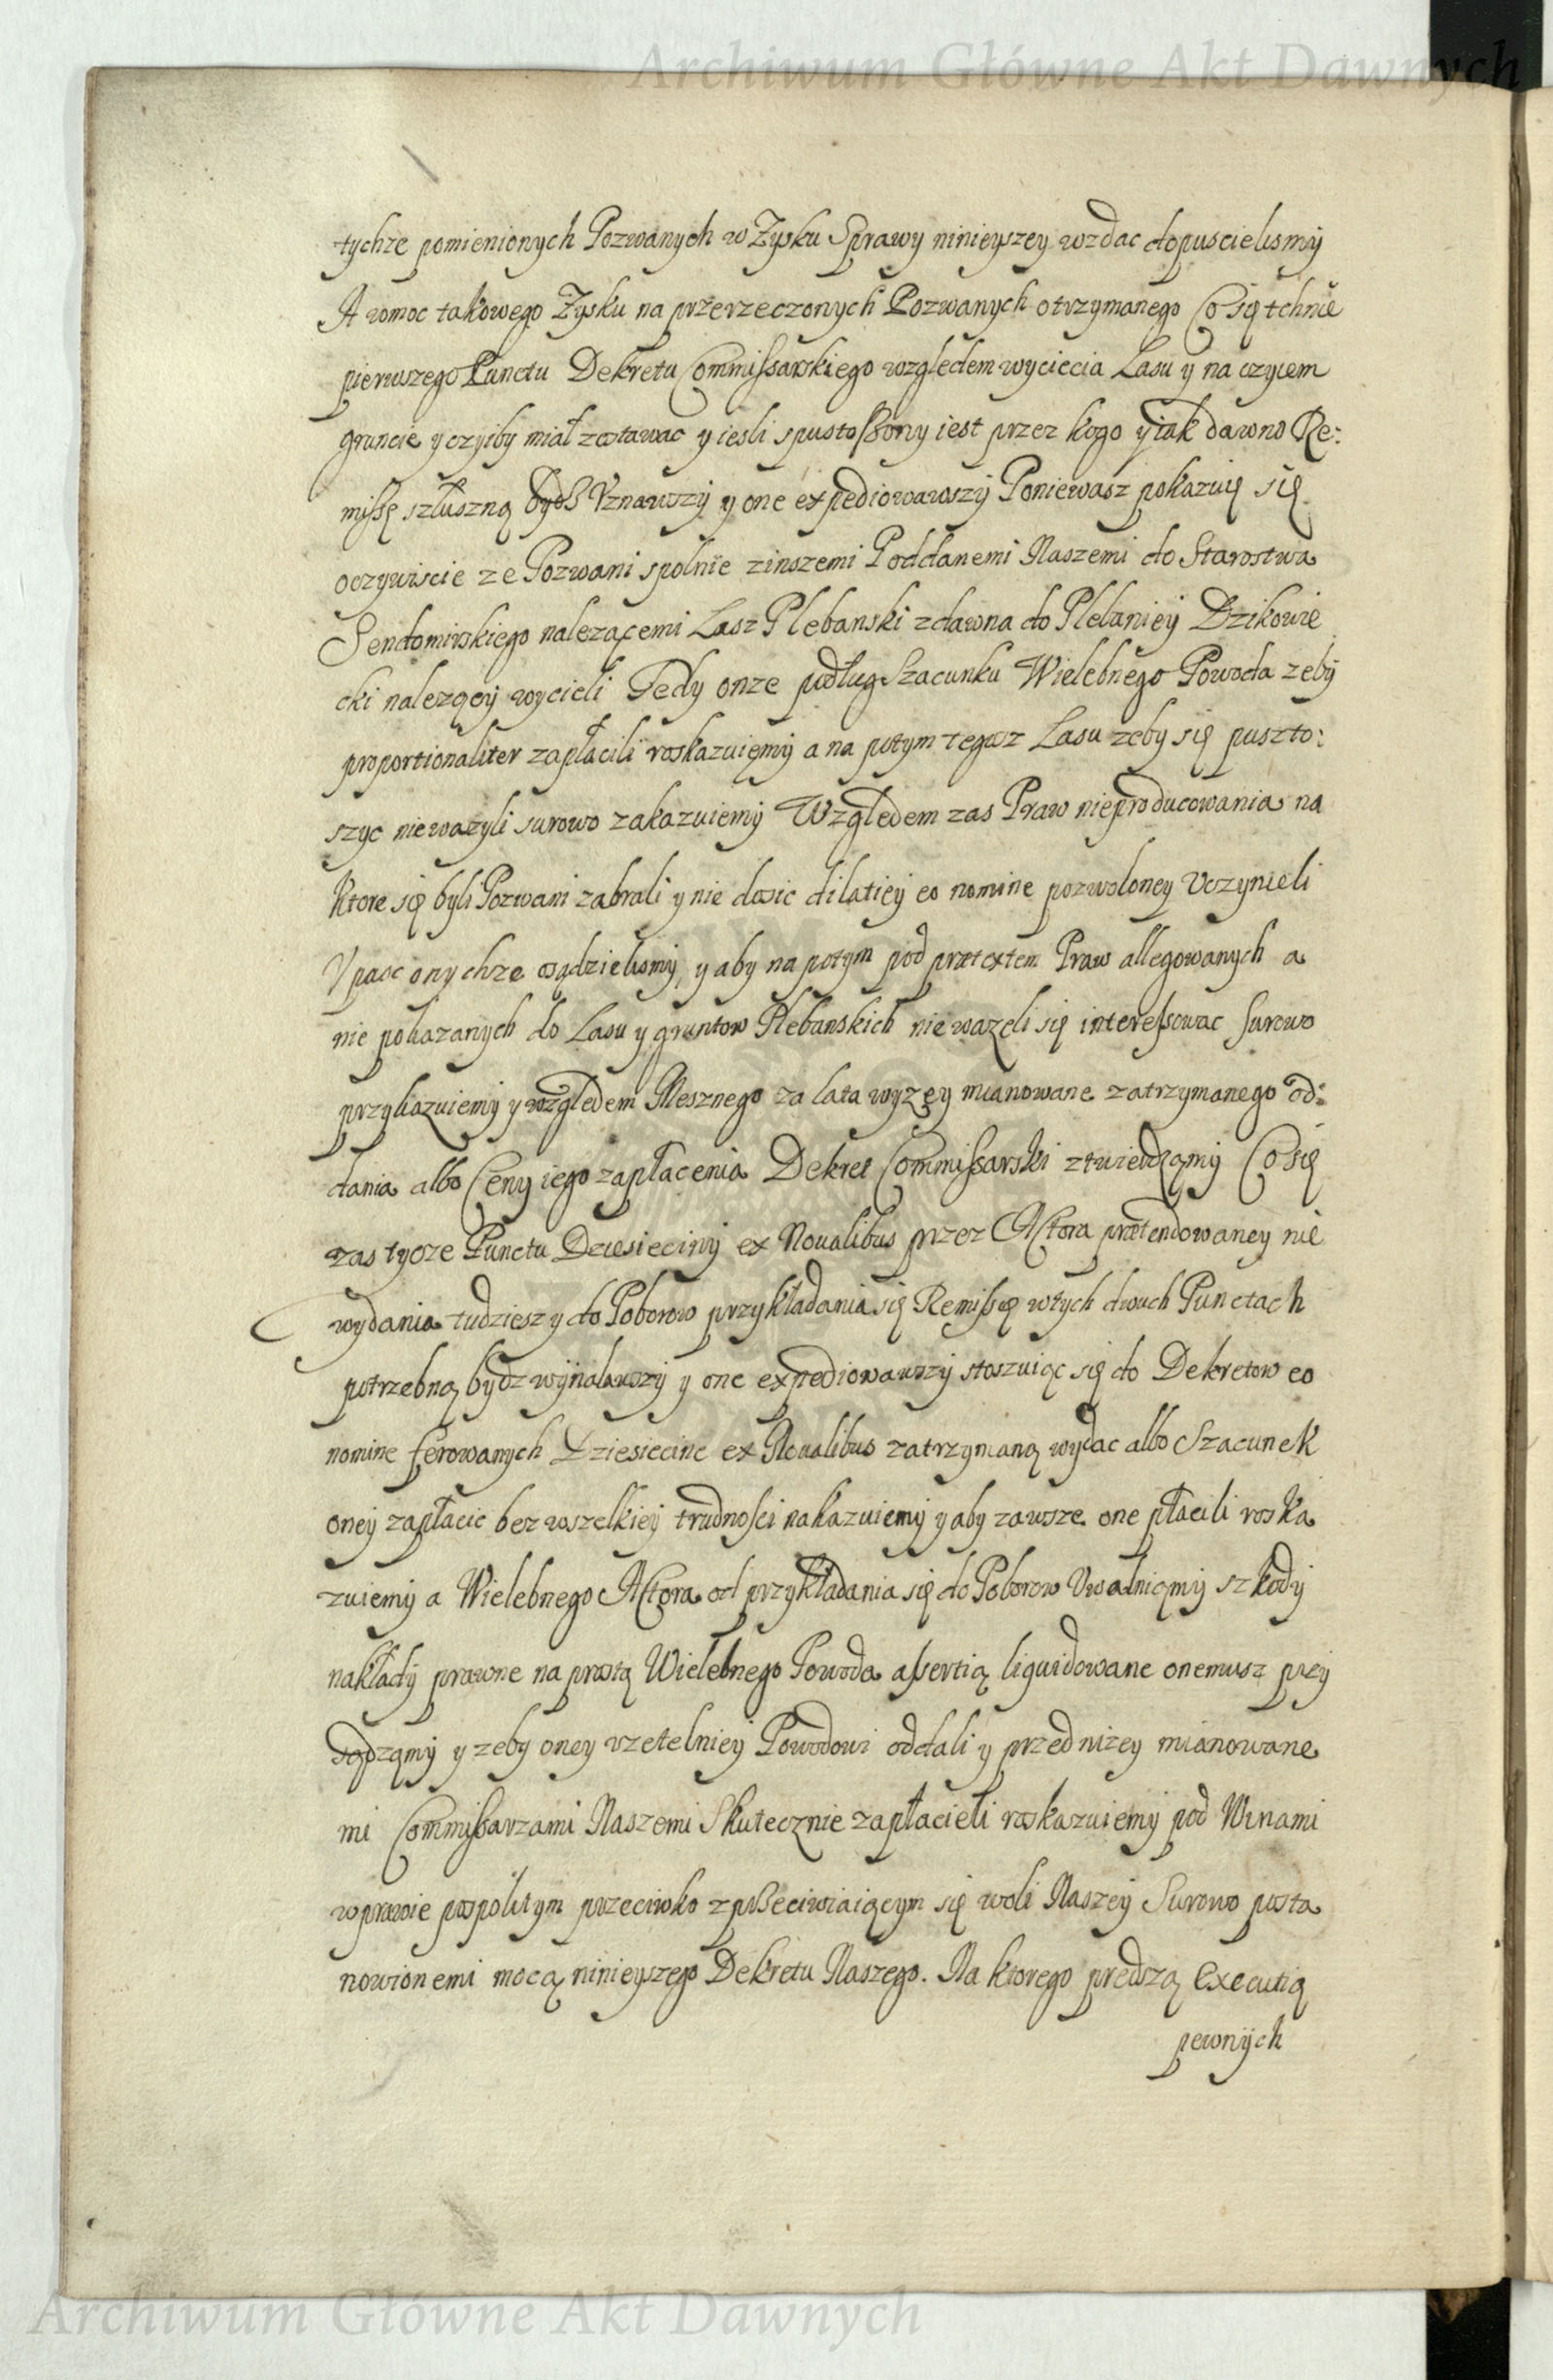 Archiwum Główne Akt Dawnych
tychże pomienionych Pozwanych w Zysku Sprawy ninieyszey wzdac dopuscielismy
A wmoc takowego Zysku na przerzeczonych Pozwanych otrzymanego Co się tchnie
pierwszego Punctu Dekretu Commissarskiego względem wyciecia Lasu y na czyiem
gruncie y czyiby miał zostawac y iesli spustoszony iest przez kogo y iak dawno Re:
missę szłuszną bydz Vznawszy y one expediowawszy Poniewasz pokazuię się
oczywiscie ze Pozwani spolnie zinszemi Poddanemi Naszemi do Starostwa
Sendomirskiego nalezącemi Lasz Plebanski zdawna do Plebaniey Dzikowie
cki nalezący wycieli Tedy onze podług Szacunku Wielebnego Powoda zeby
proportionaliter zapłacili roskazuięmy a na potym tegoz Lasu zeby się puszto:
szyc niewazyli surowo zakazuiemy Względem zas Praw nieproducowania na
Ktore się byli Pozwani zabrali y nie dosic dilatiey eo nomine pozwoloney Vczynieli
Vpasc onychze osądzielismy, y aby na potym pod prætextem Praw allegowanych a
nie pokazanych do Lasu y gruntow Plebanskich niewazeli się interessowac Surowo
przykazuiemy y względem Mesznego za lata wyzęy mianowane zatrzymanego od:
dania albo Ceny iego zapłacenia Dekret Commissarski ztwierdzamy Co się
zas tycze Punctu Dziesieciny ex Noualibus przez Actora prætendowaney nie
wydania tudziesz y do Poborow przykładania się Remissę wtych dwuch Punctach
potrzebną bydz wynalaszy y one expediowawszy stoszuiąc się do Dekretow eo
nomine ferowanych Dziesiecine ex Noualibus zatrzymaną wydac albo Szacunek
oney zapłacic bez wszelkiey trudnosci nakazuiemy y aby zawsze one płacili roska
zuiemy a Wielebnego Actora od przykładania się do Poborow Vwalniąmy szkody
nakłady prawne na prostą Wielebnego Powoda assertią liquidowane onemusz przy
sądząmy y zeby oney rzetelniey Powodowi oddali y przed nizey mianowane
mi Commissarzami Naszemi Skutecznie zapłacieli roskazuiemy pod Winami
wprawie pospolitym przeciwko zprzeciwiaiącym się woli Naszey Surowo posta
nowionemi mocą ninieyszego Dekretu Naszego. Na ktorego prędszą Executią
pewnych
Archiwum Główne Akt Dawnych